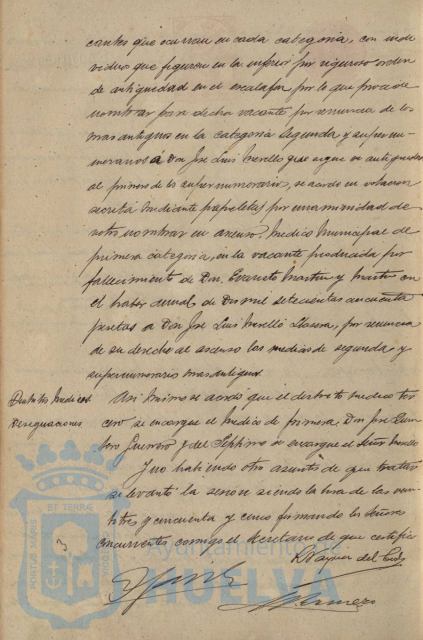 cantes que ocurran en cada categoria, con indi
viduos que figuren en la inferior por riguroso orden
de antiguedad en el escalafon por lo que procede
nombrar para dicha vacante por renuncia de los
mas antiguos en la categoria segunda y supernu-
merarios á Don Jose Luis Morello que sigue en antiguedad
al primero de los supernumerarios, se acordó en votacion
secreta mediante papeletas por unanimidad de
votos nombrar en ascenso, Medico Municipal de
primera categoria, en la vacante producida por
fallecimiento de Don Evaristo Martin y Martin con
el haber anual de Dos mil setecientas cincuenta
pesetas a Don Jose Luis Morello, por renuncia
de su derecho al ascenso los medicos de segunda y
supernumerarios mas antiguos
Distritos Medicos
Designaciones
Asi mismo se acordó que el distrito medico ter
cero se encargue el Medico de primera, Don Jose
Guerrero y del Septimo se encargue el Señor Morello
Y no habiendo otros asuntos de que tratar
se levantó la sesion siendo la hora de las vein
titres y cincuenta y cinco firmando los Señores
concurrentes conmigo el Secretario de que certifico
PORTUS MARIS
ET TERRÆ
Ayuntamiento de
HUELVA